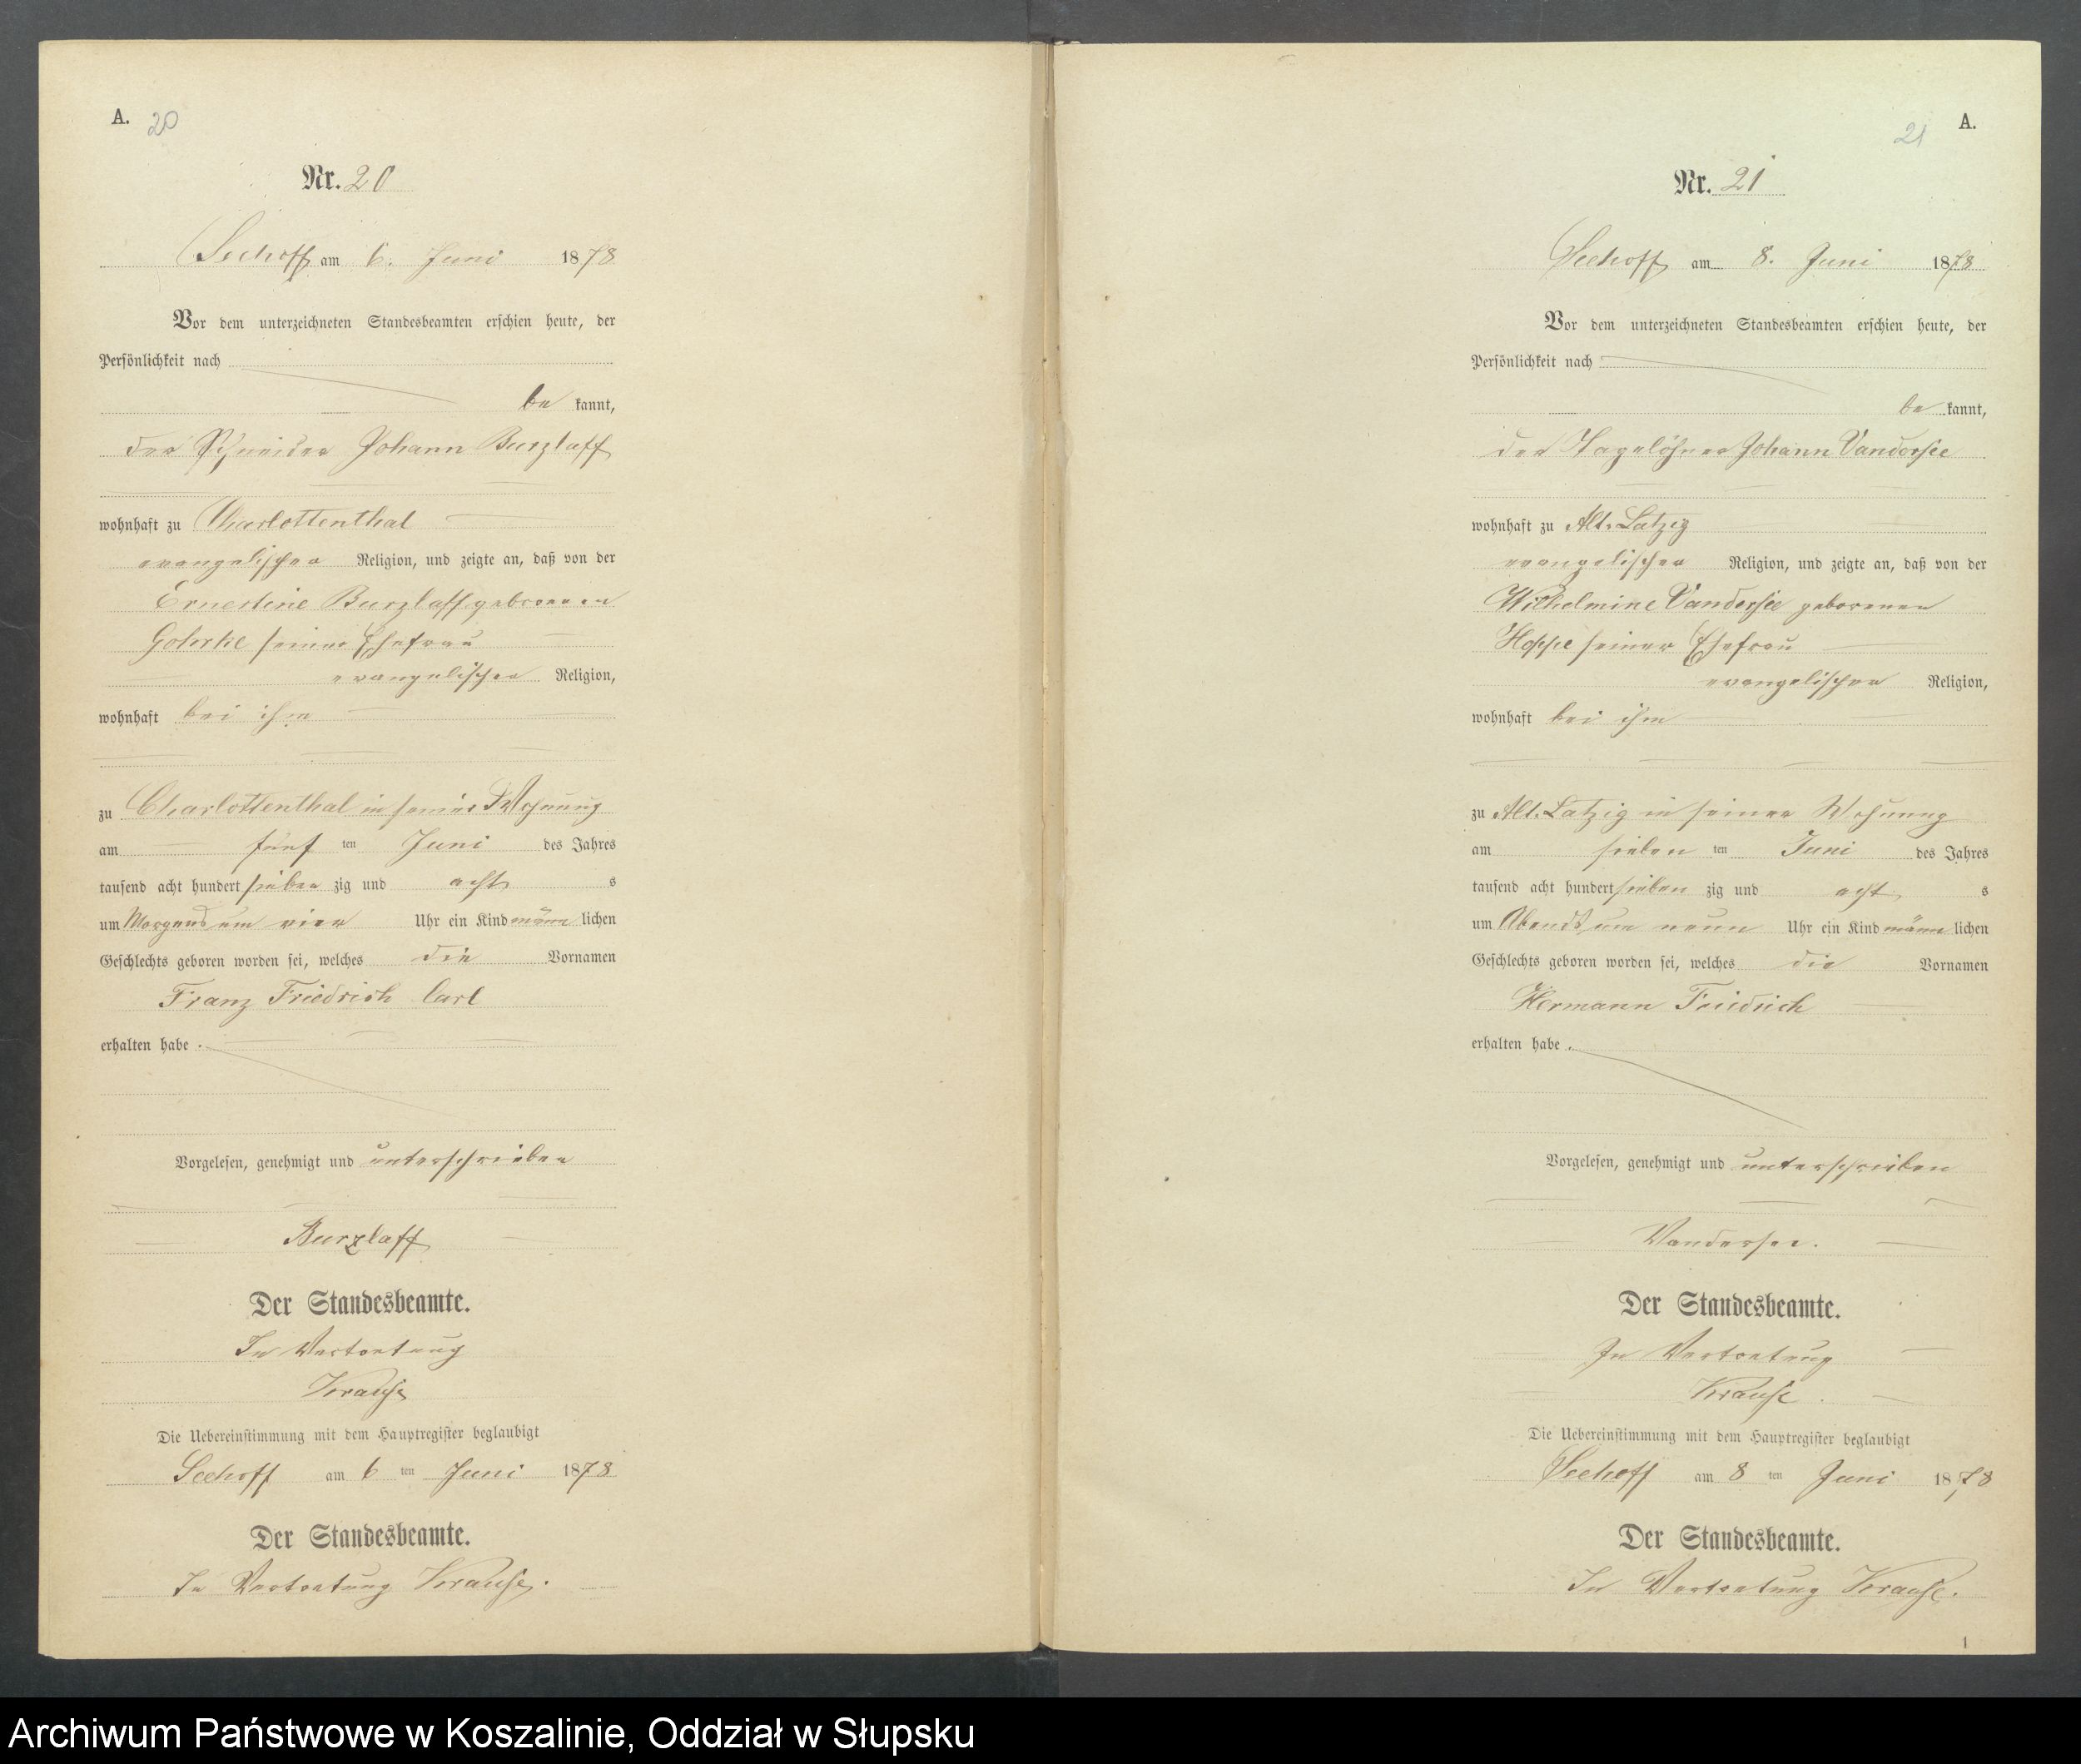 A. 20
Nr. 20
Seehoff am 6. Juni 1878
Vor dem unterzeichneten Standesbeamten erschien heute, der
Persönlichkeit nach
be kannt,
der Schneider Johann Burzlaff
wohnhaft zu Charlottenthal
evangelischer Religion, und zeigte an, daß von der
Ernestine Burzlaff geborenen
Gohrke seiner Ehefrau
evangelischer Religion,
wohnhaft bei ihm
zu Charlottenthal in seiner Wohnung
am fünf ten Juni des Jahres
tausend acht hundert sieben zig und acht s
um Morgens um vier Uhr ein Kind männ lichen
Geschlechts geboren worden sei, welches die Vornamen
Franz Friedrich Carl
erhalten habe.
Vorgelesen, genehmigt und unterschrieben
Burzlaff
Der Standesbeamte.
In Vertretung
Krause
Die Uebereinstimmung mit dem Hauptregister beglaubigt
Seehoff am 6 ten Juni 1878
Der Standesbeamte.
In Vertretung Krause.
21 A.
Nr. 21
Seehoff am 8. Juni 1878
Vor dem unterzeichneten Standesbeamten erschien heute, der
Persönlichkeit nach
be kannt,
der Tagelöhner Johann Vandersee
wohnhaft zu Alt-Latzig
evangelischer Religion, und zeigte an, daß von der
Wilhelmine Vandersee geborenen
Hoppe seiner Ehefrau
evangelischer Religion,
wohnhaft bei ihm
zu Alt-Latzig in seiner Wohnung
am sieben ten Juni des Jahres
tausend acht hundert sieben zig und acht s
um Abends um neun Uhr ein Kind männ lichen
Geschlechts geboren worden sei, welches die Vornamen
Hermann Friedrich
erhalten habe.
Vorgelesen, genehmigt und unterschrieben
Vandersee.
Der Standesbeamte.
In Vertretung
Krause.
Die Uebereinstimmung mit dem Hauptregister beglaubigt
Seehoff am 8 ten Juni 1878
Der Standesbeamte.
In Vertretung Krause.
1
Archiwum Państwowe w Koszalinie, Oddział w Słupsku